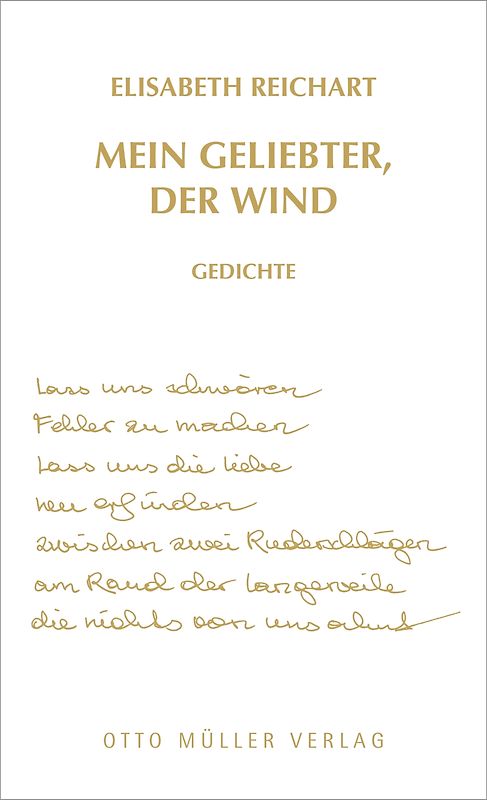 ELISABETH REICHART
MEIN GELIEBTER,
DER WIND
GEDICHTE
Lass uns schwören
Fehler zu machen
Lass uns die Liebe
neu erfinden
zwischen zwei Ruderschlägen
am Rand der Langeweile
die nichts von uns ahnt
OTTO MÜLLER VERLAG